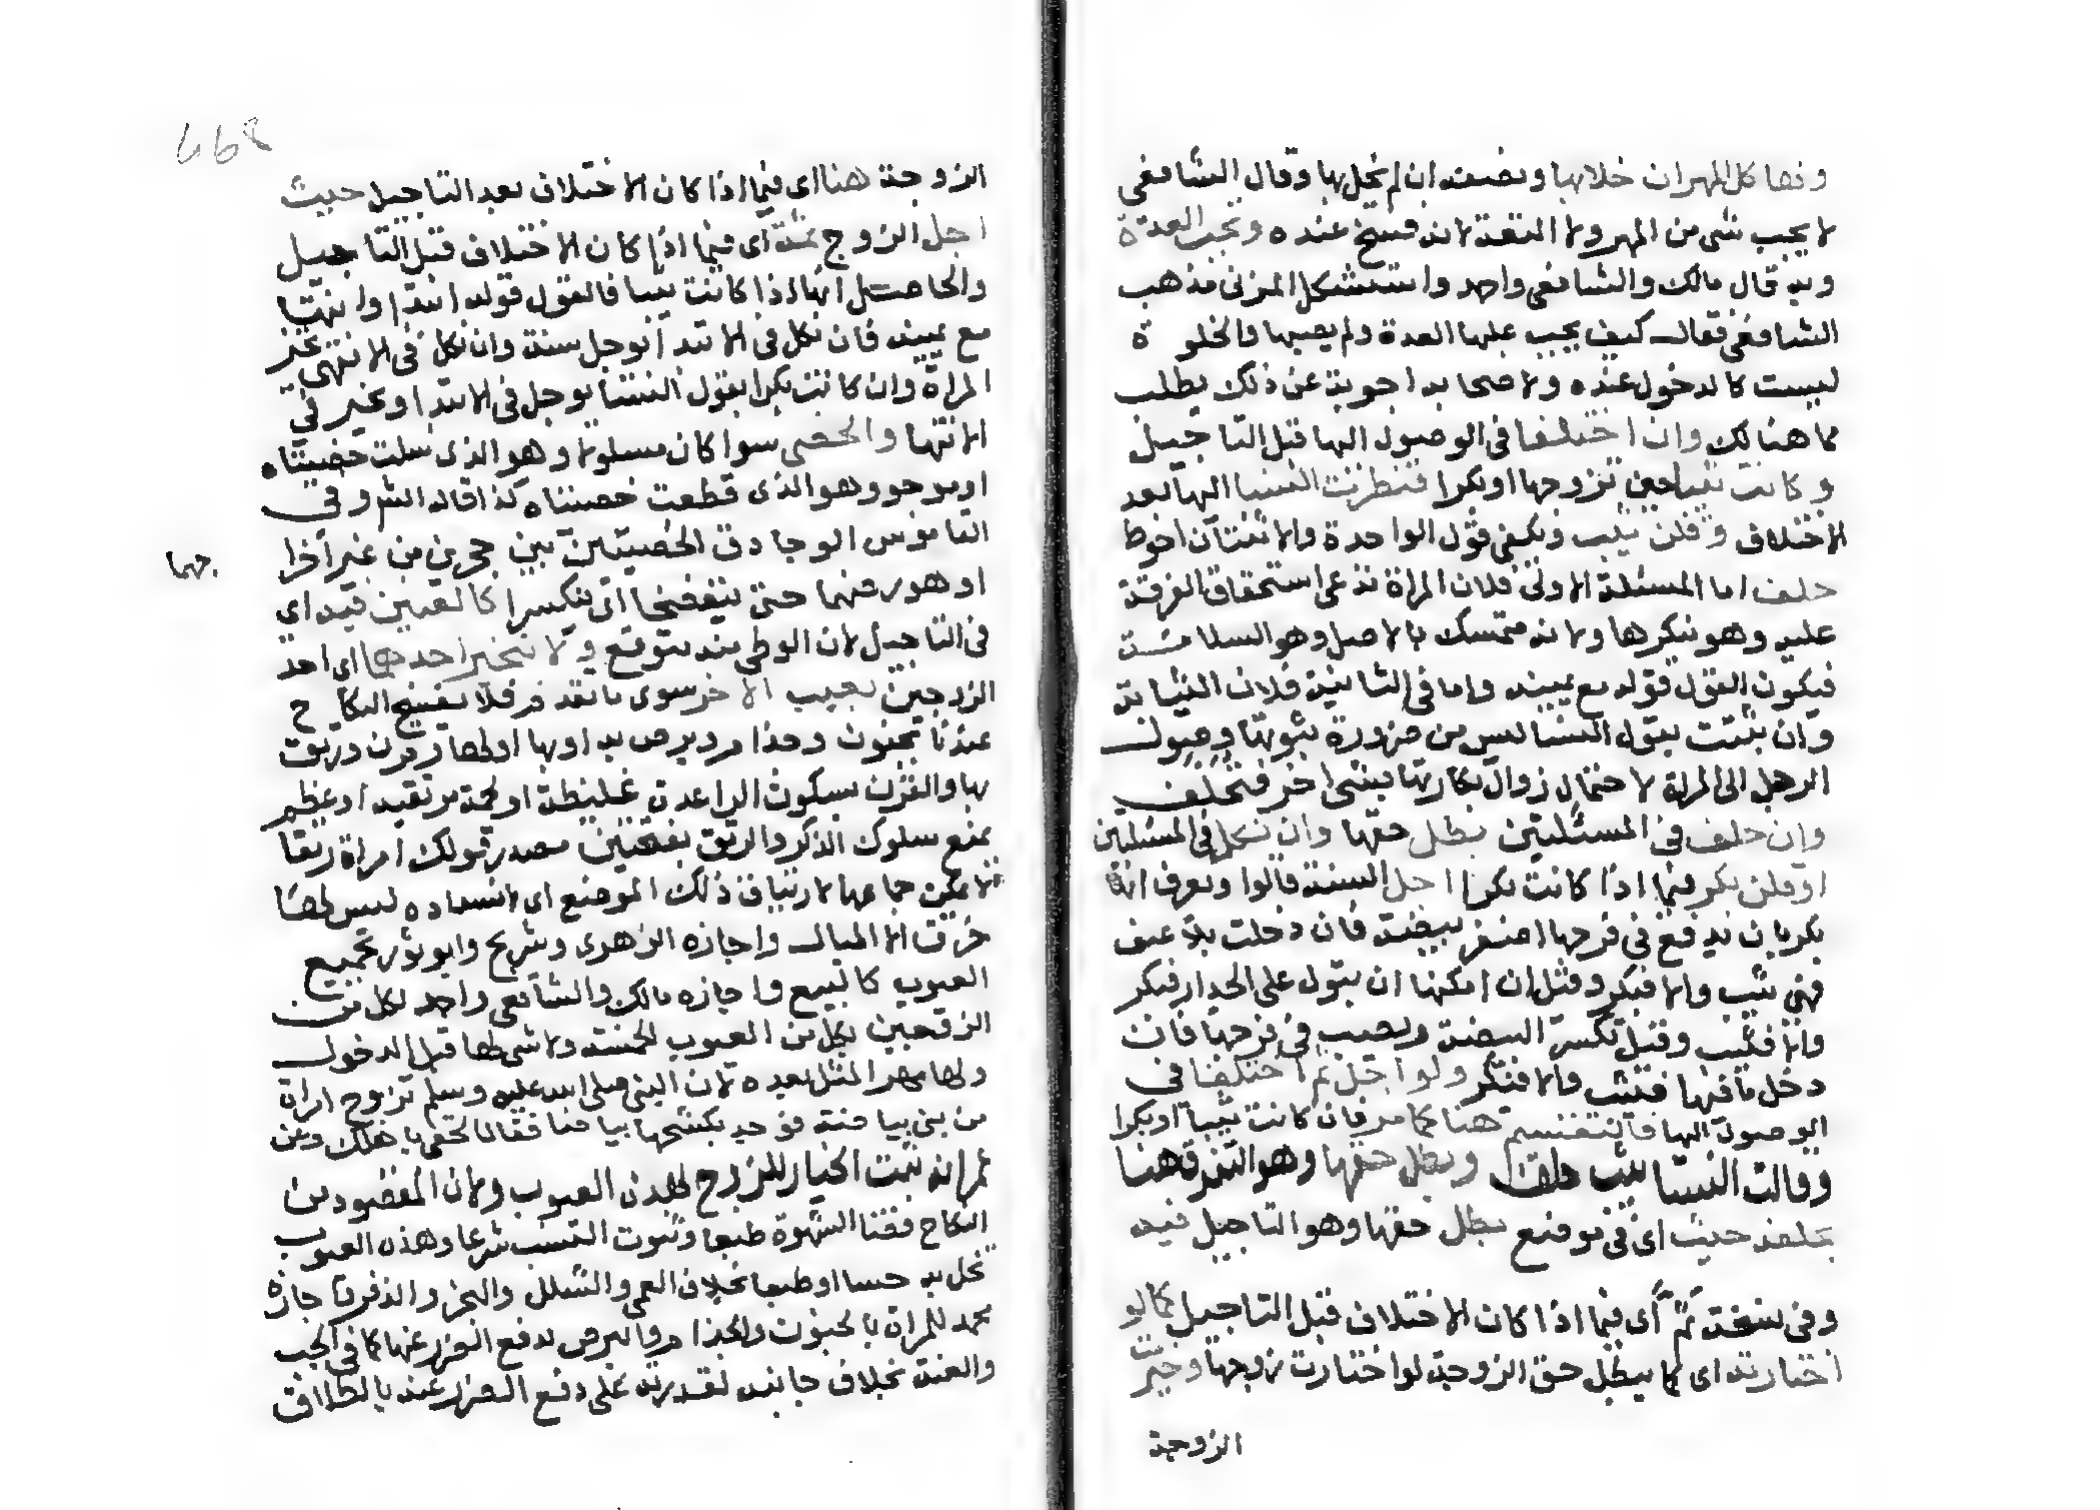 ولها كل المهر ان خلا بها ونصفه ان لم يخل بها وقال الشافعي
لا يجب شي من المهر ولا المتعة لانه فسخ عنده وتجب العدة
وبه قال مالك والشافعي واحمد واستشكل المزني مذهب
الشافعي فقال كيف يجب عليها العدة ولم يصبها والخلوة
ليست كالدخول عنده ولاصحابه اجوبة عن ذلك يطلب
مما هنالك وان اختلفا في الوصول اليها قبل التاجيل
وكانت ثيبا حين تزوجها او بكرا فنظرت النسا اليها بعد
الاختلاف وقلن ثيب ويكفي قول الواحدة والاثنتان احوط
حلف اما المسئلة الاولى فلان المراة تدعي استحقاق الفرقة
عليه وهو ينكرها ولانه متمسك بالاصل وهو السلامة
فيكون القول قوله مع يمينه واما في الثانية فلان الثيابة
وان ثبتت بقول النسا ليس من ضرورة ثبوتها وصول
الرجل الى المراة لاحتمال زوال بكارتها بشي اخر فتحلف
وان حلف في المسئلتين بطل حقها وان نكل في المسئلتين
او قلن بكر فيما اذا كانت بكرا اجل السنة قالوا وتعرف انها
بكر بان يدفع في فرجها اصغر بيضة فان دخلت بلا عنف
فهي ثيب والا فبكر وقيل ان امكنها ان تبول على الجدار فبكر
والا فثيب وقيل تكسر البيضة وتصب في فرجها فان
دخل ما فيها فثيب والا فبكر ولو اجل ثم اختلفا في
الوصول اليها فالتقسيم هنا كما مر فان كانت ثيبا او بكرا
وقالت النسا ثيب حلف وبطل حقها وهو التفرق هنا
بحلفه حيث اي في موضع بطل حقها وهو التاجيل فيه
وفي نسخة ثم اي فيما اذا كان الاختلاف قبل التاجيل كما لو
اختارته اي كما يبطل حق الزوجة لو اختارت زوجها وخيرت
الزوجة
الزوجة هنا اي فيما اذا كان الاختلاف بعد التاجيل حيث
اجل الزوج ثمة اي فيما اذا كان الاختلاف قبل التاجيل
والحاصل انها اذا كانت ثيبا فالقول قوله ابتدا وانتها
مع يمينه فان نكل في الابتدا يوجل سنة وان نكل في الانتهى تخير
المراة وان كانت بكرا بقول النسا يوجل في الابتدا وتخير في
الانتها والخصي سوا كان مسلولا وهو الذي سلت خصيتاه
او موجو وهو الذي قطعت خصيتاه كذا قاله الشم وفي
القاموس الوجا دق الخصيتين بين حجرين من غير اخرا
جهما
او هو رضهما حتى تنفضخا اي ينكسرا كالعنين فيه اي
في التاجيل لان الوطي منه متوقع ولا يتخير احدهما اي احد
الزوجين بعيب الاخر سوى ما تقدم فلا يفسخ النكاح
عندنا بجنون وجذام وبرص به او بها او لها وقرن ورتق
بها والقرن بسكون الرا غدة غليظة او لحمة مرتفعة او عظم
يمنع سلوك الذكر والرتق بفتحتين مصدر قولك امراة رتقا
لا يمكن جماعها لارتتاق ذلك الموضع اي لانسداده ليس لها
خرق الا المبال واجازه الزهري وشريح وابو ثور بجميع
العيوب كالبيع واجازه مالك والشافعي واحمد لكل من
الزوجين بكل من العيوب الخمسة ولا شي لها قبل الدخول
ولها مهر المثل بعده لان النبي صلى الله عليه وسلم تزوج امراة
من بني بياضة فوجد بكشحها بياضا فقال الحقي باهلك وعن
عمر انه ثبت الخيار للزوج لهذه العيوب ولان المقصود من
النكاح قضا الشهوة طبعا وثبوت النسب شرعا وهذه العيوب
تخل به حسا او طبعا بخلاف العمى والشلل والبخر والذفر واجازه
محمد للمراة بالجنون والجذام والبرص لدفع الضرر عنها كما في الجب
والعنة بخلاف جانبه لقدرته على دفع الضرر عنه بالطلاق